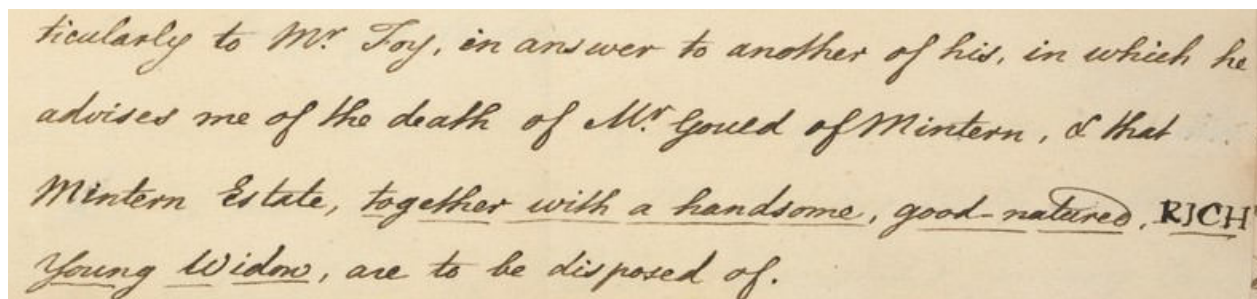 ticularly to Mr. Foy, in answer to another of his, in which he
advises me of the death of Mr. Gould of Mintern, & that
Mintern Estate, together with a handsome, good-natured, RICH
Young Widow, are to be disposed of.